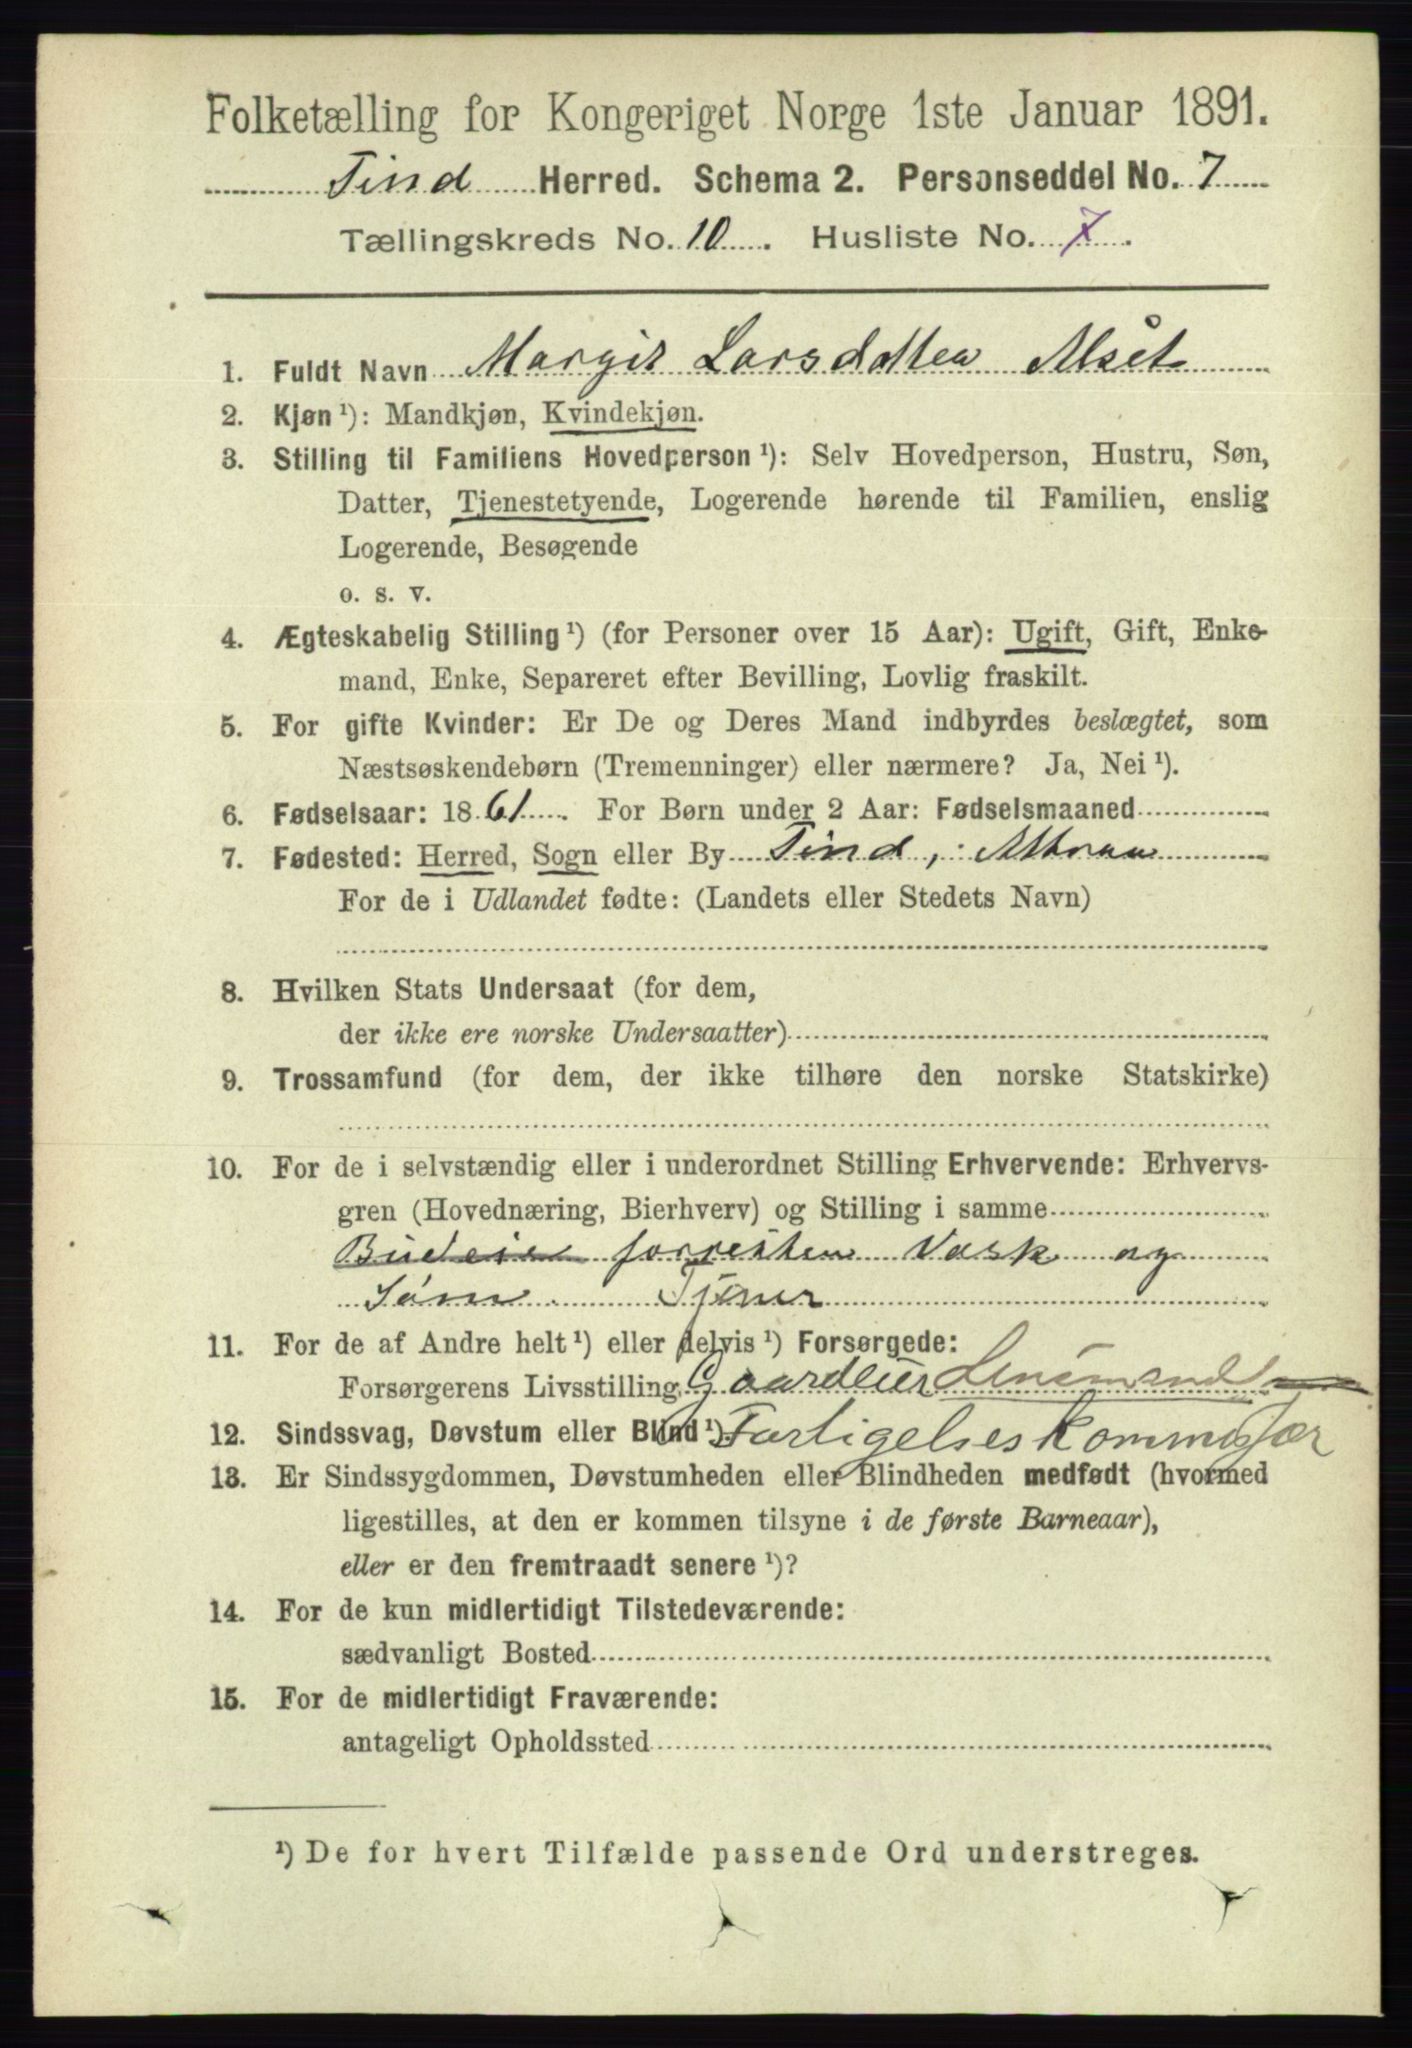 Folketælling for Kongeriget Norge 1ste Januar 1891.
Tind Herred. Schema 2. Personseddel No. 7
Tællingskreds No. 10. Husliste No. 7.
1. Fuldt Navn Margit Larsdatter
2. Kjøn ¹): Mandkjøn, Kvindekjøn.
3. Stilling til Familiens Hovedperson ¹): Selv Hovedperson, Hustru, Søn,
Datter, Tjenestetyende, Logerende hørende til Familien, enslig
Logerende, Besøgende
o. s. v.
4. Ægteskabelig Stilling ¹) (for Personer over 15 Aar): Ugift, Gift, Enke-
mand, Enke, Separeret efter Bevilling, Lovlig fraskilt.
5. For gifte Kvinder: Er De og Deres Mand indbyrdes beslægtet, som
Næstsøskendebørn (Tremenninger) eller nærmere? Ja, Nei ¹).
6. Fødselsaar: 1861. For Børn under 2 Aar: Fødselsmaaned
7. Fødested: Herred, Sogn eller By Tind, Attraa
For de i Udlandet fødte: (Landets eller Stedets Navn)
8. Hvilken Stats Undersaat (for dem,
der ikke ere norske Undersaatter)
9. Trossamfund (for dem, der ikke tilhøre den norske Statskirke)
10. For de i selvstændig eller i underordnet Stilling Erhvervende: Erhvervs-
gren (Hovednæring, Bierhverv) og Stilling i samme
Budeie forretten Vask og
Søm Tjener
11. For de af Andre helt ¹) eller delvis ¹) Forsørgede:
Forsørgerens Livsstilling Gaardeier Lensmand
12. Sindssvag, Døvstum eller Blind ¹). Forligelseskommissær
13. Er Sindssygdommen, Døvstumheden eller Blindheden medfødt (hvormed
ligestilles, at den er kommen tilsyne i de første Barneaar),
eller er den fremtraadt senere ¹)?
14. For de kun midlertidigt Tilstedeværende:
sædvanligt Bosted
15. For de midlertidigt Fraværende:
antageligt Opholdssted
¹) De for hvert Tilfælde passende Ord understreges.